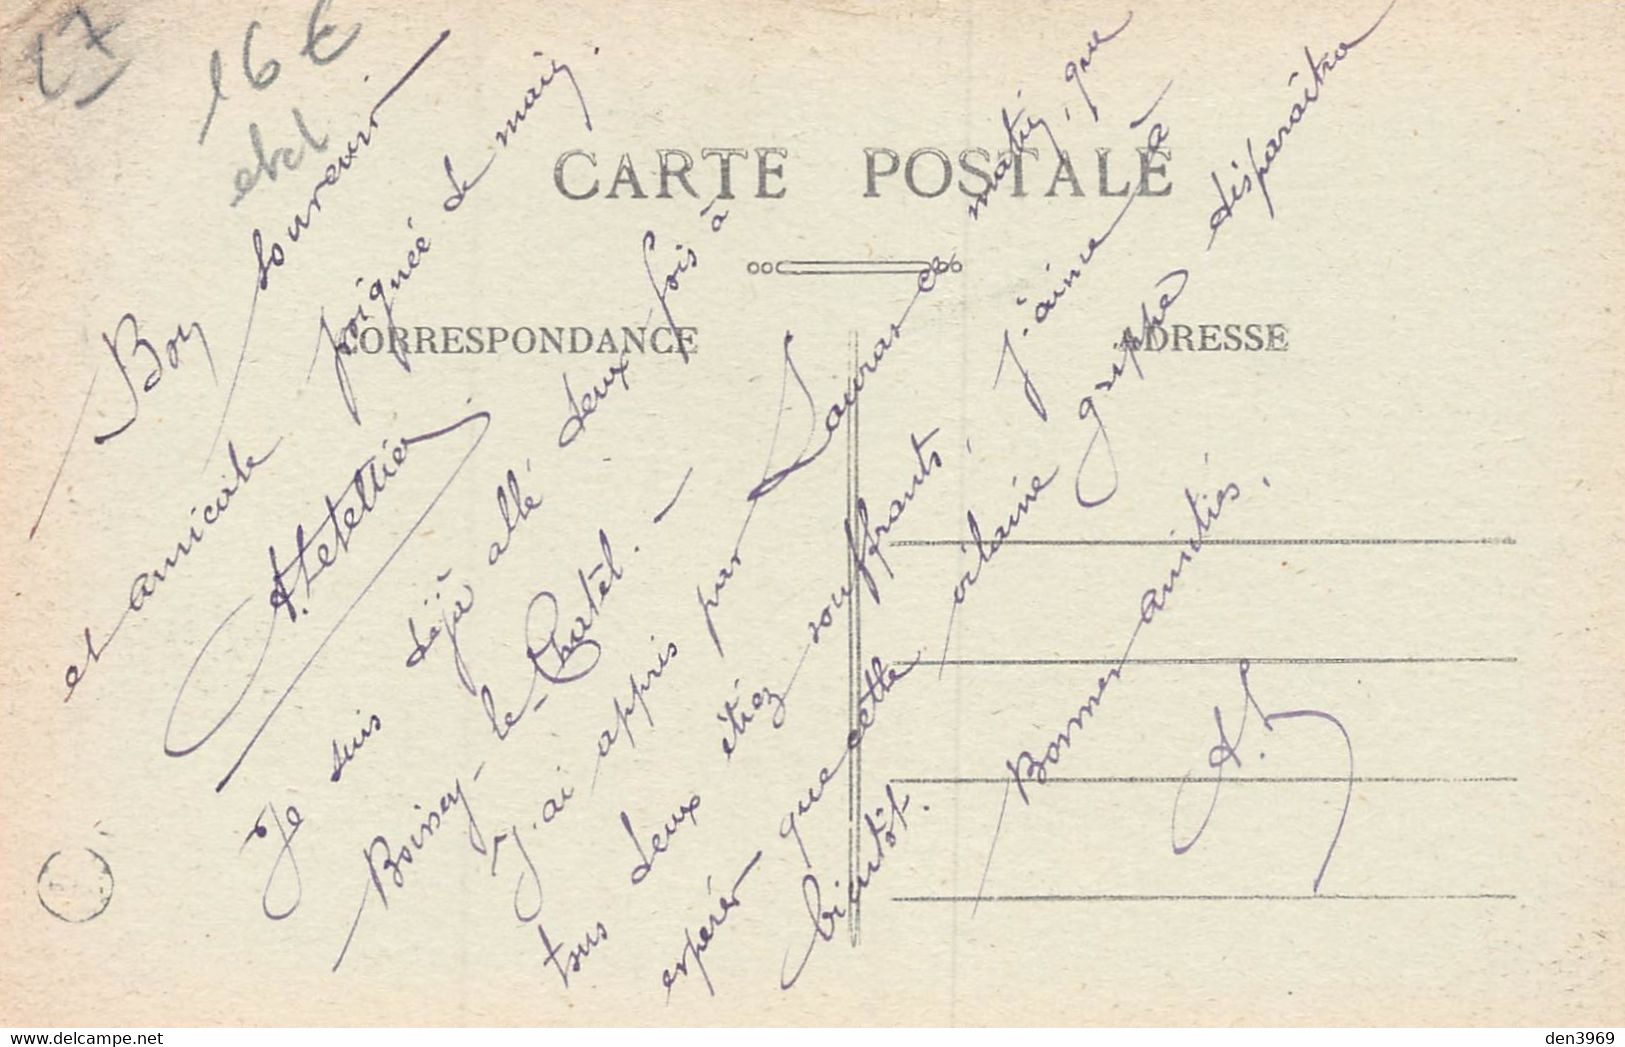 27
16 €
CARTE POSTALE
CORRESPONDANCE
ADRESSE
Bon souvenir
et amicale poignée de main.
A. Letellier
Je suis déjà allé deux fois à
Boissey-le-Chatêl. —
J'ai appris par ce matin, que
tous deux étiez souffrants, J'aime à
espérer que cette vilaine grippe disparaîtra
bientôt.
Bonnes amitiés.
A. L
delcampe.net
den3969